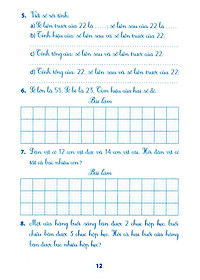 5. Viết số rồi tính:
a) Số liền trước của 22 là ......; số liền sau của 22 là......
b) Tính hiệu của: số liền sau và số liền trước của 22:
c) Tính tổng của: số liền sau và số liền trước của 22:
d) Tính tổng của: 22, số liền sau và số liền trước của 22:
6. Số lớn là 55. Số bé là 23. Tìm hiệu của hai số đó.
Bài làm
7. Đàn vịt có 12 con vịt đực và 14 con vịt cái. Hỏi đàn vịt có
tất cả bao nhiêu con?
Bài làm
8. Một cửa hàng buổi sáng bán được 2 chục hộp kẹo, buổi
chiều bán được 3 chục hộp kẹo. Hỏi cả hai buổi cửa hàng
bán được bao nhiêu hộp kẹo?
12